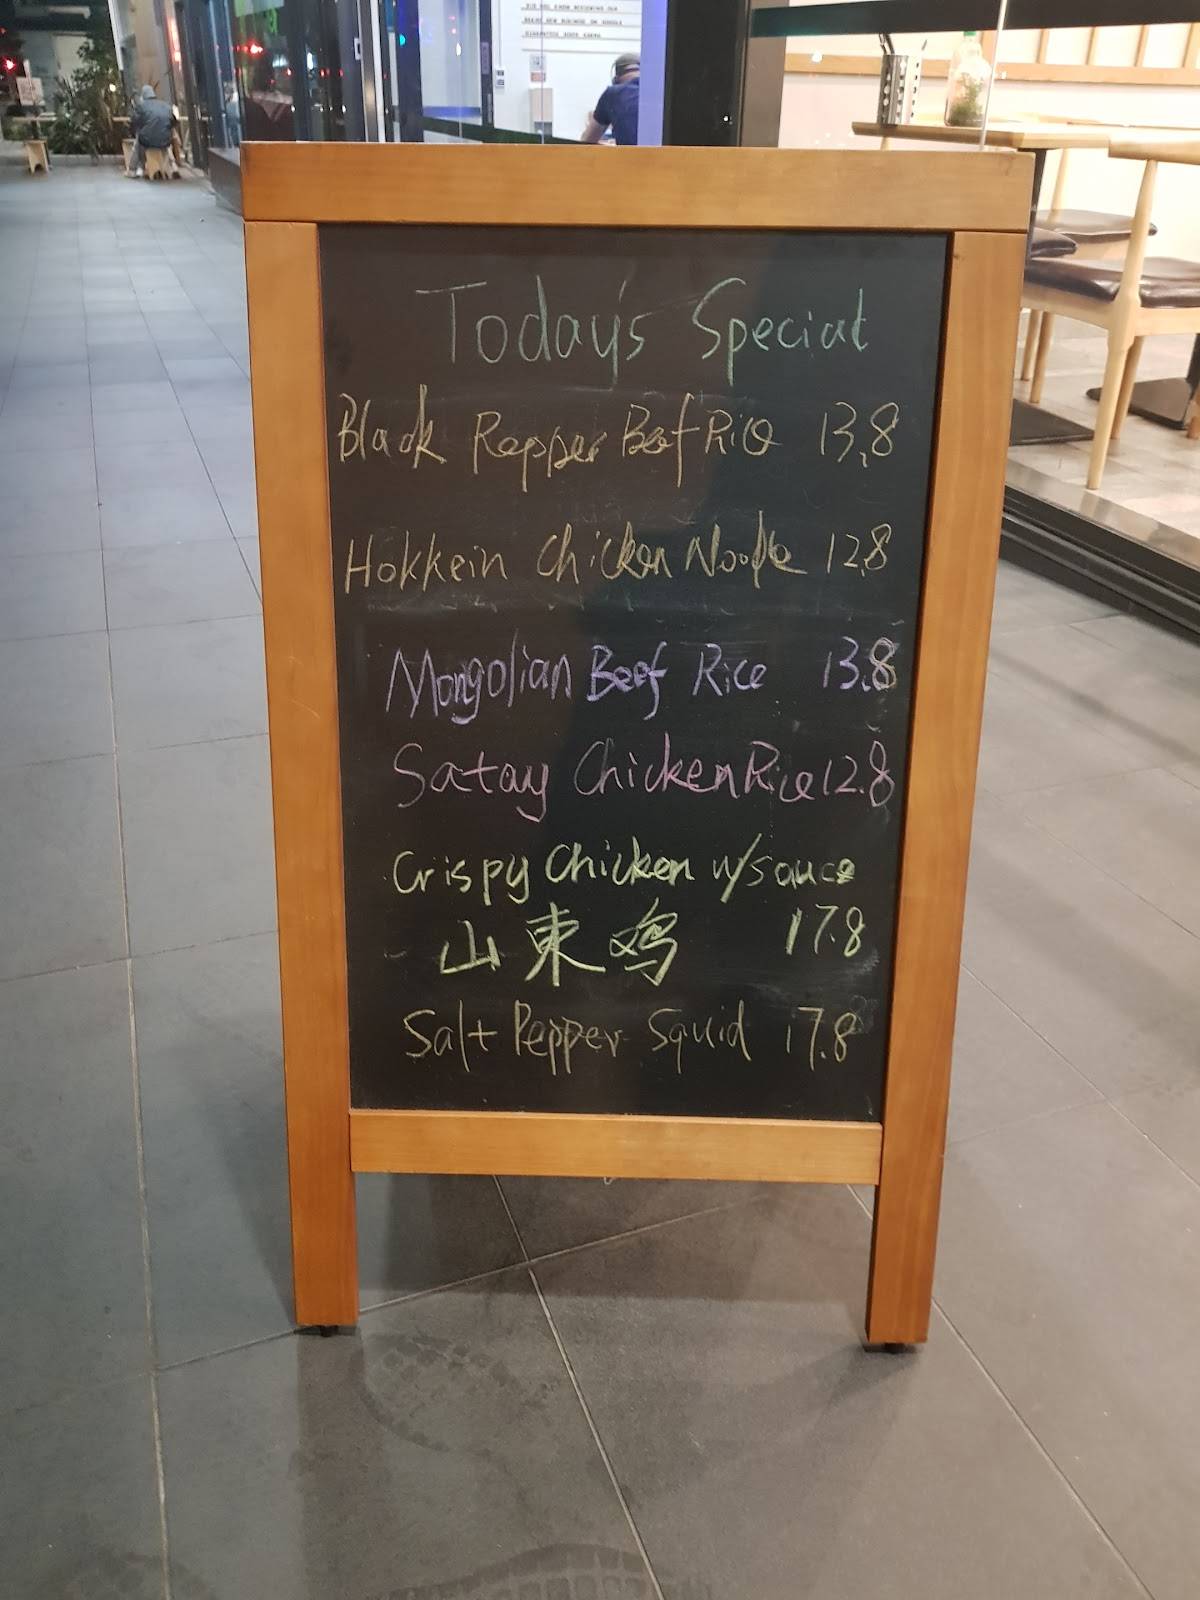 Today's Special
Black Pepper Beef Rice 13.8
Hokkein Chicken Noodle 12.8
Mongolian Beef Rice 13.8
Satay Chicken Rice 12.8
Crispy Chicken w/sauce
山東鸡 17.8
Salt Pepper Squid 17.8